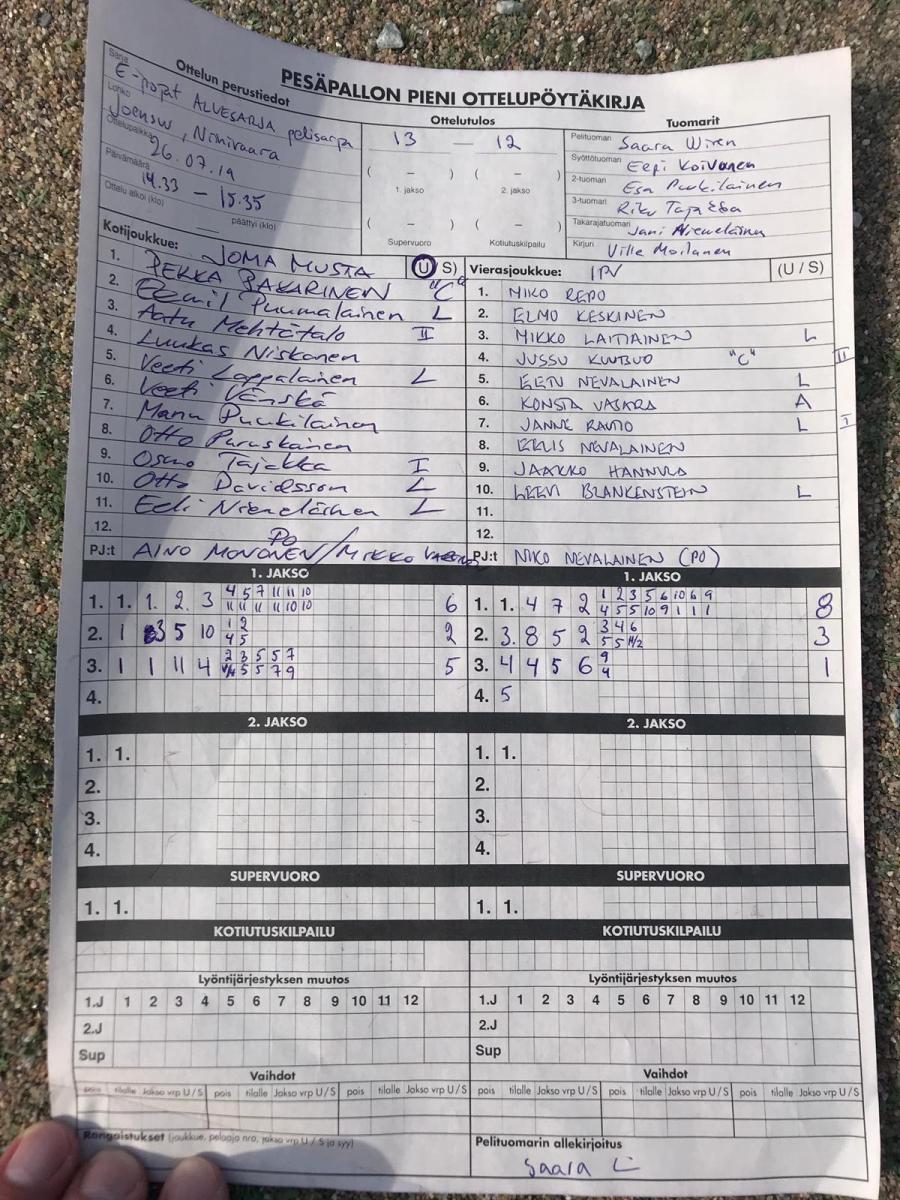 PESÄPALLON PIENI OTTELUPÖYTÄKIRJA
Ottelun perustiedot
Sarja E-pojat ALUESARJA pelisarja
Lohko
Ottelupaikka Joensuu, Niinivaara
Päivämäärä 26.07.19
Ottelu alkoi (klo) 14.33 — 15.35
päättyi (klo)
Ottelutulos
13 — 12
( – ) ( – )
1. jakso 2. jakso
( – ) ( – )
Supervuoro Kotiutuskilpailu
Tuomarit
Pelituomari Saara Wiren
Syöttötuomari Eepi Koivonen
2-tuomari Esa Puukilainen
3-tuomari Riku
Takarajatuomari Jani Niemeläinen
Kirjuri Ville Moilanen
Kotijoukkue: JOMA MUSTA (U / S)
1. PEKKA PAKARINEN "C"
2. Eemil Puumalainen L
3. Aatu Mehtätalo II
4. Luukas Niskanen
5. Veeti Lappalainen L
6. Veeti Vänskä
7. Manu Puukilainen
8. Otto Puruskainen
9. Osmo Tajakka I
10. Otto Davidsson L
11. Eeli Niemeläinen L
12.
PJ:t AINO MONONEN / MIKKO
PO
Vierasjoukkue: IPV (U / S)
1. NIKO REPO
2. ELMO KESKINEN
3. MIKKO LAITIAINEN L
4. JUSSU "C" II
5. EETU NEVALAINEN L
6. KONSTA A
7. JANNE RAUTIO L I
8. EELIS NEVALAINEN
9. JAAKKO HANNULA
10. LEEVI BLANKENSTEIN L
11.
12.
PJ:t NIKO NEVALAINEN (PO)
1. JAKSO
1. 1. 1. 2. 3 4 5 7 11 11 10 6
11 11 11 11 10 10
2. 1 3 5 10 1 2 2
4 5
3. 1 1 11 4 2 3 5 5 7 5
5 5 7 9
4.
1. JAKSO
1. 1. 4 7 2 1 2 3 5 6 10 6 9 8
4 5 5 10 9 1 1 1
2. 3. 8 5 2 3 4 6 3
5 5 11/2
3. 4 4 5 6 9 1
4
4. 5
2. JAKSO
1. 1.
2.
3.
4.
2. JAKSO
1. 1.
2.
3.
4.
SUPERVUORO
1. 1.
SUPERVUORO
1. 1.
KOTIUTUSKILPAILU
KOTIUTUSKILPAILU
Lyöntijärjestyksen muutos
1.J 1 2 3 4 5 6 7 8 9 10 11 12
2.J
Sup
Lyöntijärjestyksen muutos
1.J 1 2 3 4 5 6 7 8 9 10 11 12
2.J
Sup
Vaihdot
pois tilalle Jakso vrp U / S pois tilalle Jakso vrp U / S pois tilalle Jakso vrp U / S
Vaihdot
pois tilalle Jakso vrp U / S pois tilalle Jakso vrp U / S pois tilalle Jakso vrp U / S
Rangaistukset (joukkue, pelaaja nro, jakso vrp U / S ja syy)
Pelituomarin allekirjoitus
Saara